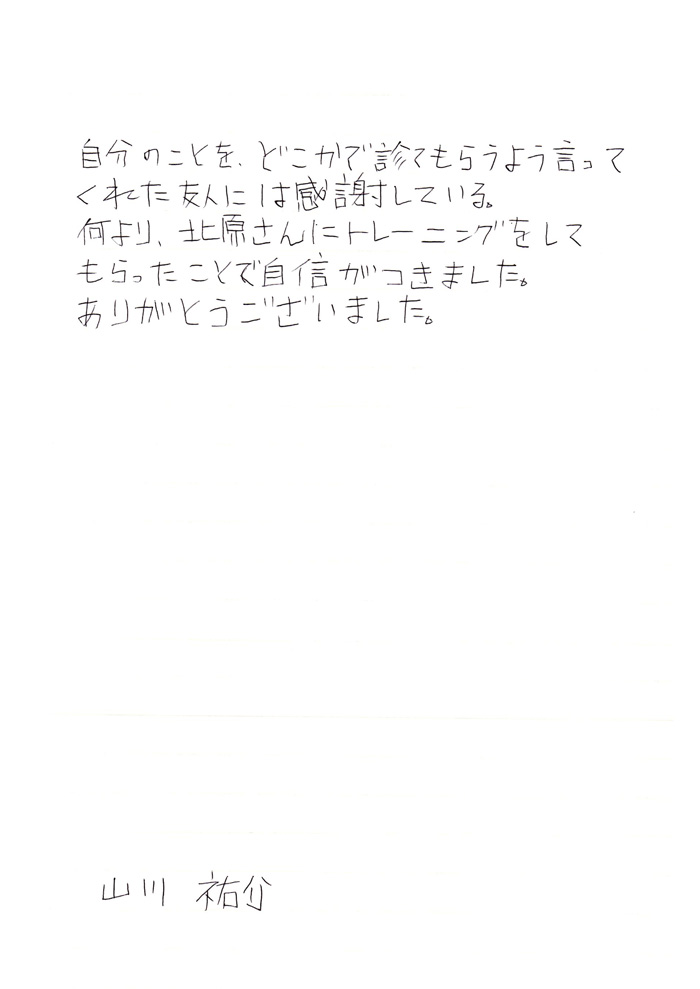 自分のことを、どこかで診てもらうよう言って
くれた友人には感謝している。
何より、北原さんにトレーニングをして
もらったことで自信がつきました。
ありがとうございました。
山川 祐介